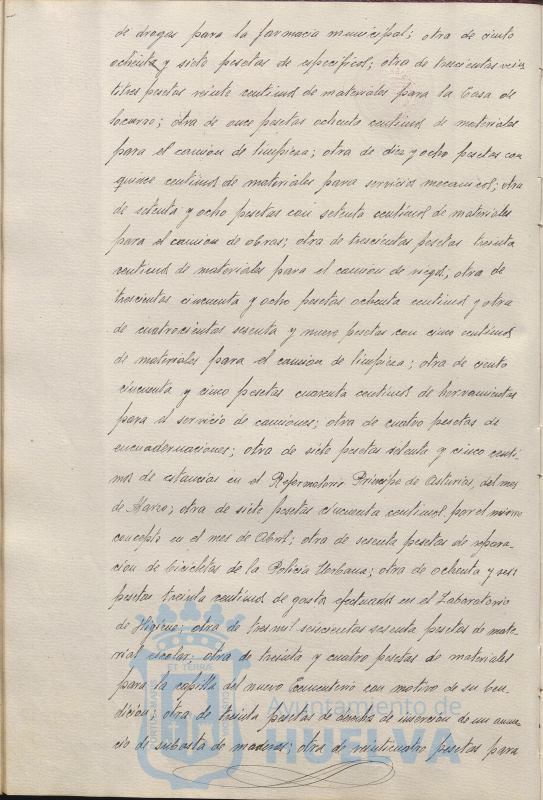 de drogas para la farmacia municipal; otra de ciento
ochenta y siete pesetas de específicos; otra de trescientas vein
titres pesetas veinte centimos de materiales para la Casa de
Socorro; otra de once pesetas ochenta centimos de materiales
para el camion de limpieza; otra de diez y ocho pesetas con
quince centimos de materiales para servicios mecanicos; otra
de setenta y ocho pesetas con setenta centimos de materiales
para el camion de obras; otra de trescientas pesetas treinta
centimos de materiales para el camion de riegos, otra de
trescientas cincuenta y ocho pesetas ochenta centimos y otra
de cuatrocientas sesenta y nueve pesetas con cinco centimos
de materiales para el camion de limpieza; otra de ciento
cincuenta y cinco pesetas cuarenta centimos de herramientas
para el servicio de camiones; otra de cuatro pesetas de
encuadernaciones; otra de siete pesetas setenta y cinco centi-
mos de estancias en el Reformatorio Principe de Asturias, del mes
de Marzo; otra de siete pesetas cincuenta centimos por el mismo
concepto en el mes de Abril; otra de sesenta pesetas de repara-
cion de bicicletas de la Policia Urbana; otra de ochenta y seis
pesetas treinta centimos de gastos efectuados en el Laboratorio
de Higiene; otra de tres mil seiscientas sesenta pesetas de mate-
rial escolar; otra de treinta y cuatro pesetas de materiales
para la capilla del nuevo Cementerio con motivo de su ben-
dición; otra de treinta pesetas de derechos de inserción de un anun-
cio de subasta de maderas; otra de veinticuatro pesetas para
ET TERRA
Ayuntamiento de
HUELVA